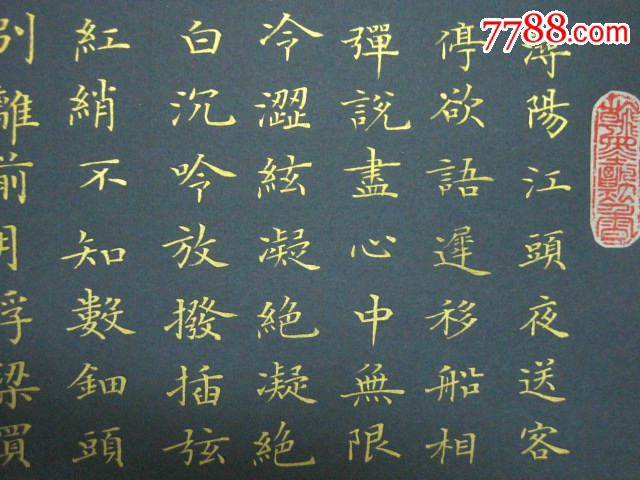 7788.com
潯陽江頭夜送客
停欲語遲移船相
彈說盡心中無限
冷澀絃凝絶凝絶
白沉吟放撥插弦
紅綃不知數鈿頭
別離前月浮梁買